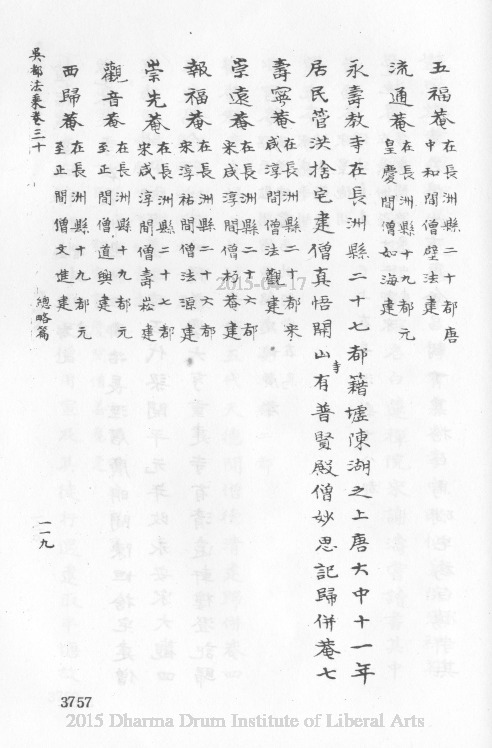 五福菴在長洲縣二十都唐
中和間僧壁法建
流通菴在長洲縣十九都元
皇慶間僧如海建
永壽教寺在長洲縣二十七都藉墟陳湖之上唐大中十一年
居民管洪捨宅建僧真悟開山寺有普賢殿僧妙思記歸併菴七
壽寧菴在長洲縣二十都宋
咸淳間僧法觀建
崇遠菴在長洲縣二十六都
宋咸淳間僧杉菴建
報福菴在長洲縣二十六都
宋淳祐間僧法源建
崇先菴在長洲縣二十七都
宋咸淳間僧壽崧建
觀音菴在長洲縣十九都元
至正間僧道興建
西歸菴在長洲縣十九都元
至正間僧文進建
吳都法乘卷三十
總略篇
一一九
3757
2015-04-17
2015 Dharma Drum Institute of Liberal Arts